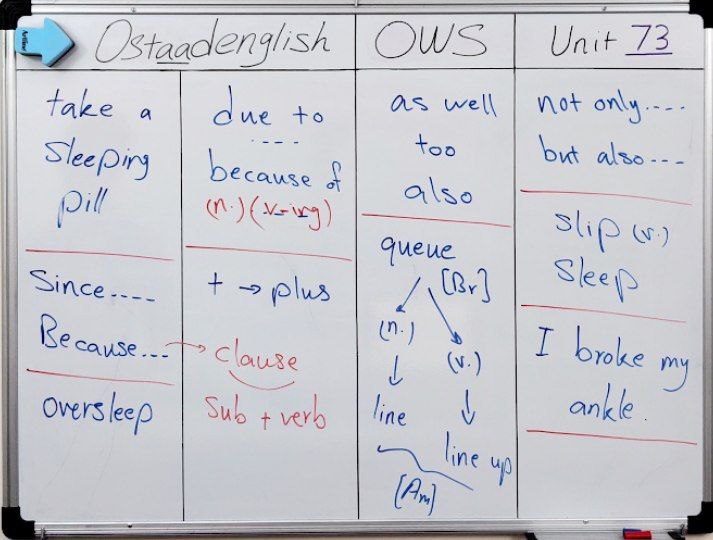 Ostaadenglish
OWS
Unit 73
take a
sleeping
pill
Since....
Because...
oversleep
due to
....
because of
(n.) (v-ing)
+ → plus
clause
Sub + verb
as well
too
also
queue
[Br]
(n.)
(v.)
line
line up
[Am]
not only....
but also...
slip (v.)
sleep
I broke my
ankle.